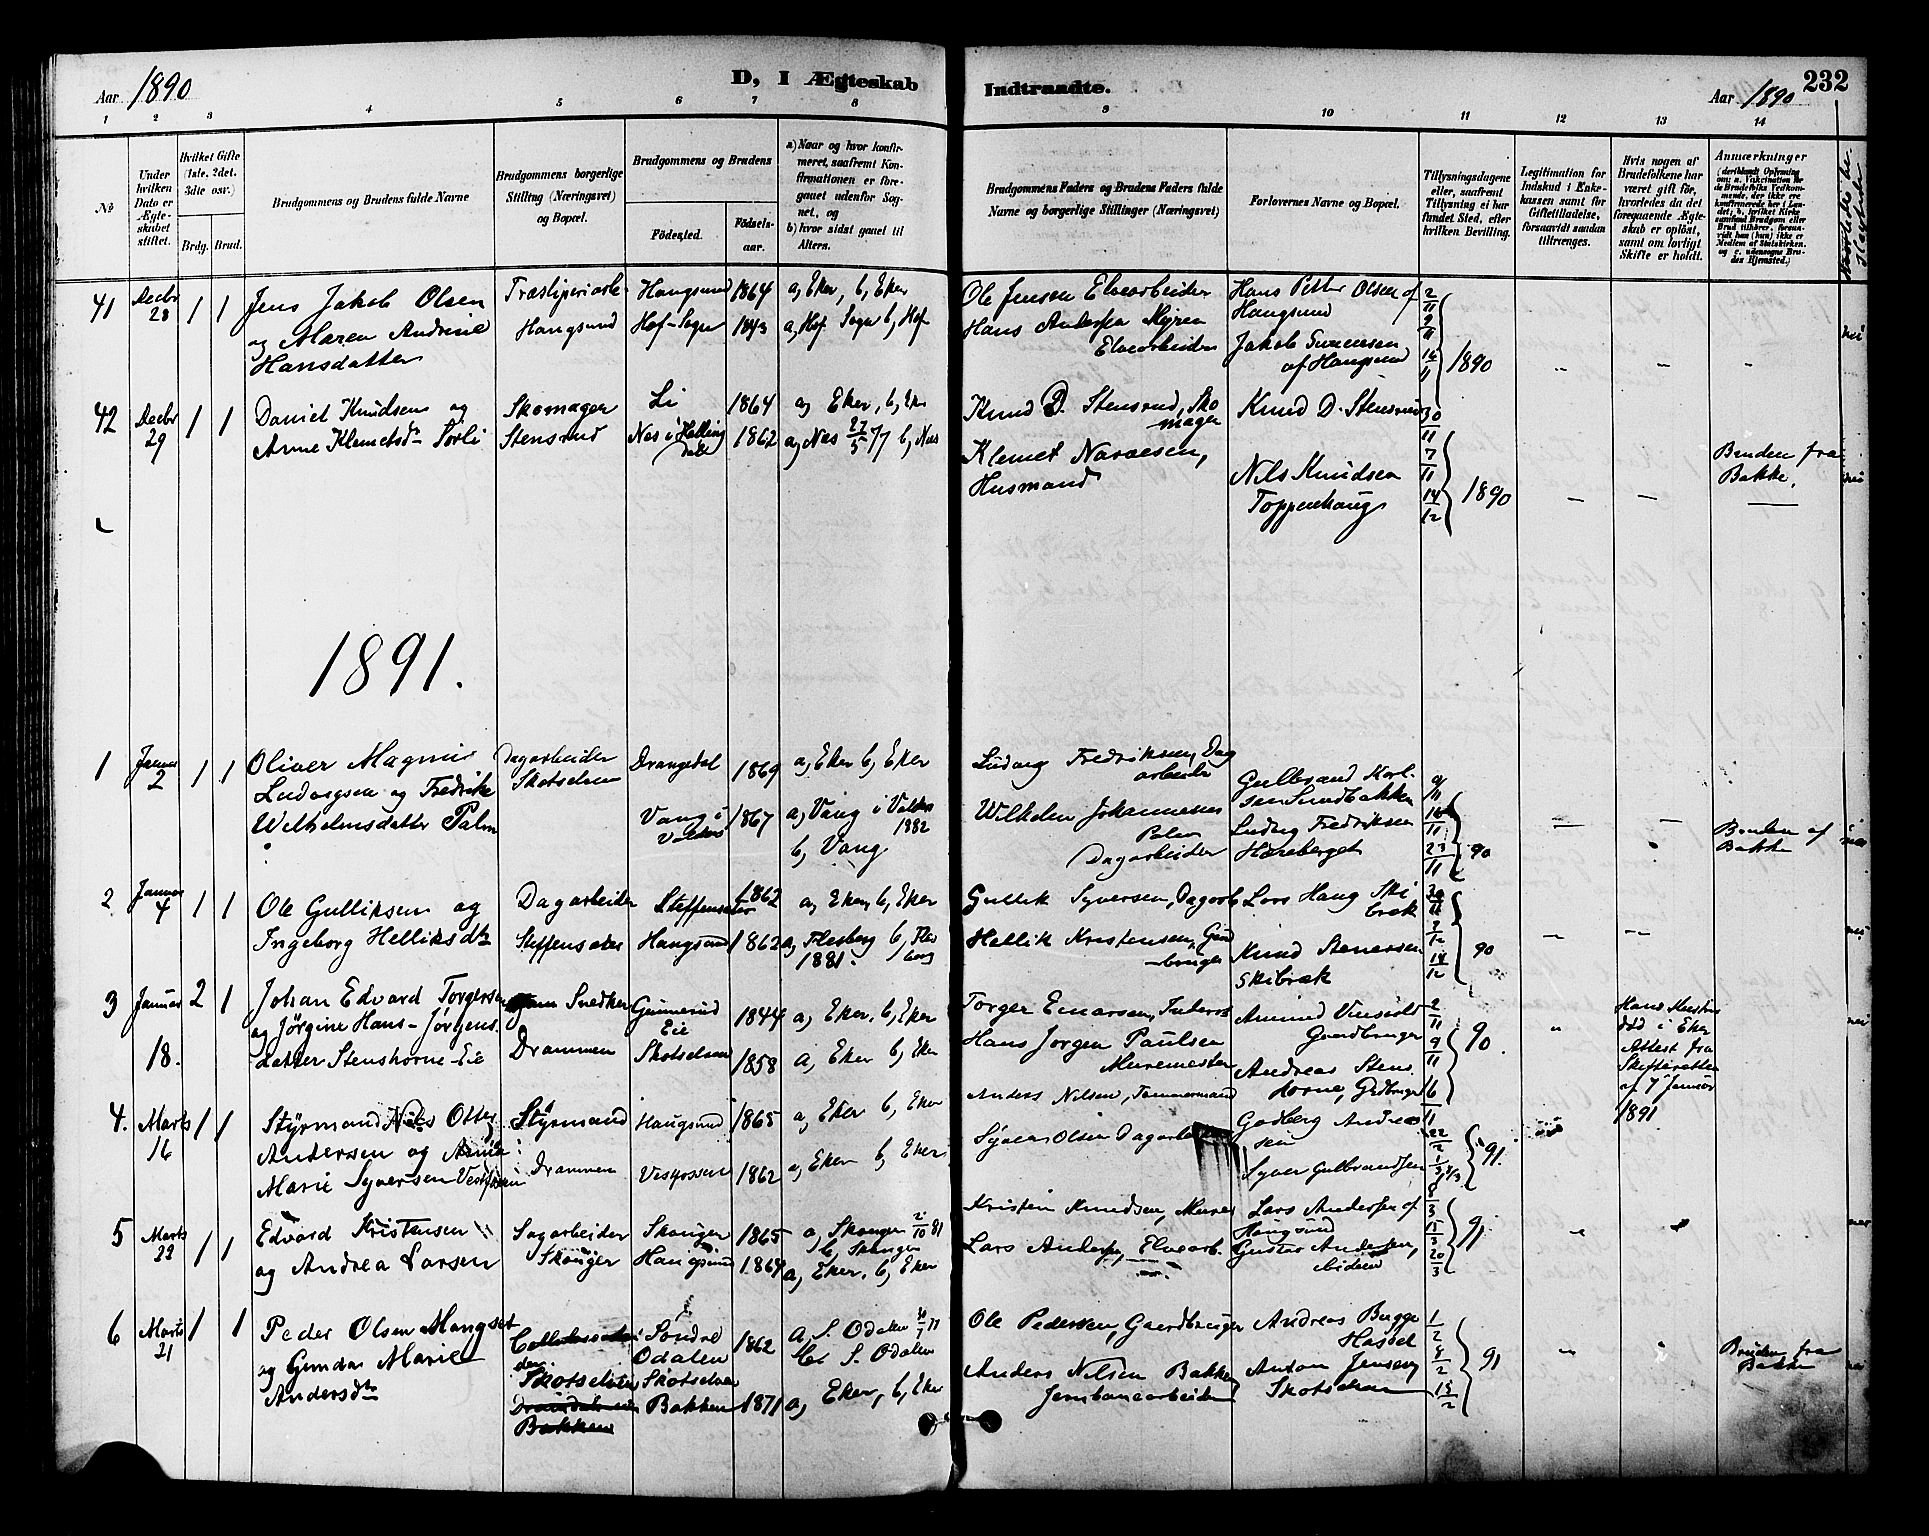 Aar 1890
D, I Ægteskab
Indtraadte.
Aar 1890
232
1 2 3 4 5 6 7 8 9 10 11 12 13 14
№
Under hvilken Dato er Ægteskabet stiftet.
Hvilket Gifte (1ste, 2det, 3die osv.)
Brdg. Brud.
Brudgommens og Brudens fulde Navne
Brudgommens borgerlige Stilling (Næringsvei) og Bopæl.
Brudgommens og Brudens
Fødested.
Fødselsaar.
a) Naar og hvor konfirmeret, saafremt Konfirmationen er foregaaet udenfor Sognet, og
b) hvor sidst gaaet til Alters.
Brudgommens Faders og Brudens Faders fulde Navne og borgerlige Stillinger (Næringsvei)
Forlovernes Navne og Bopæl.
Tillysningsdagene eller, saafremt Tillysning ei har fundet Sted, efter hvilken Bevilling.
Legitimation for Indskud i Enkekassen samt for Giftetilladelse, forsaavidt saadan tiltrænges.
Hvis nogen af Brudefolkene har været gift før, hvorledes da det foregaaende Ægteskab er opløst, samt om lovligt Skifte er holdt.
Anmærkninger
41 Decbr 28 1 1
Jens Jakob Olsen
og Maren Andrine
Hansdatter
Træsliperiarb.
Haugsund
Haugsund 1864 a, Eker, b, Eker
Hof-Sogn 1843 a, Hof Sogn b, Hof
Ole Jensen Elvearbeider
Hans Andersen Myren
Elvearbeider
Hans Petter Olsen af
Haugsund
Jakob Gunnersen
af Haugsund
2/11 9/11 16/11 1890
42 Decbr 29 1 1
Daniel Knudsen og
Anne Klemetsdr Sørli
Skomager
Stensrud
Li 1864 a, Eker, b, Eker
Nes i Hallingdal 1862 a, Næs 27/5 77 b, Næs
Knud D. Stensrud, Skomager
Klemet Navaesen,
Husmand
Knud D. Stensrud
Nils Knudsen
Toppenhaug
30/11 7/11 14/12 1890
Bruden fra
Bakke.
1891.
1 Januar 2 1 1
Oliver Magnus
Ludvigsen og Fredrike
Wilhelmsdatter Palm
Dagarbeider
Skotselven
Drangedal 1869 a, Eker b, Eker
Vang i Valders 1867 a, Vang i Valders 1882
b, Vang
Ludvig Fredriksen, Dagarbeider
Wilhelm Johannesen
Palm
Dagarbeider
Gulbrand Karlsen Sundbakken
Ludvig Fredriksen
Horeberget
9/11 16/11 23/11 90
Bruden af
Bakke
2 Januar 4 1 1
Ole Gulliksen og
Ingeborg Helliksdtr
Dagarbeider
Steffensæter
Steffensæter 1862 a, Eker, b, Eker
Haugsund 1862 a, Flesberg b, Flesberg
1881.
Gullik Syversen, Dagarb.
Hellik Kristensen, Gaardbruger
Lars Haug Skibræk
Knud Stenersen
Skibræk
30/11 7/12 14/12 90
3 Januar 18. 2 1
Johan Edvard Torgersen
og Jørgine Hans-Jørgensdatter Stenshorne-Eie
Snedker
Drammen
Gunnerud Eie 1844 a, Eker, b, Eker
Skotselven 1858 a, Eker b, Eker
Torger Einarsen, Inderst
Hans Jørgen Paulsen
Muremester
Amund Vinsvold
Gaardbruger
Andreas Stenshorne, Grdbruger
2/11 9/11 16/11 90
død i Eker
Attest fra
Skifteretten
af 7 Januar
1891
4. Marts 16 1 1
Styrmand Nils Otto
Andersen og Anna
Marie Syversen Vestfossen
Styrmand
Drammen
Haugsund 1865 a, Eker b, Eker
Vestfossen 1862 a, Eker b, Eker
Anders Nilsen, Tømmermand
Syver Olsen Dagarbeider
Godberg Andreassen
Syver Gulbrandsen
22/2 1/3 8/3 91.
5 Marts 22 1 1
Edvard Kristensen
og Andrea Larsen
Sagarbeider
Skouger
Skouger 1865 a, Skouger 2/10 81
b, Skouger
Haugsund 1869 a, Eker, b, Eker
Kristen Knudsen, Murer
Lars Andersen, Elvearb.
Lars Andersen af
Haugsund
Gustav Andersen,
ibidem
8/3 15/3 20/3 91
6 Marts 21 1 1
Peder Olsen Mangset
og Gunda Marie
Andersdtr
Skotselven
Bakken
Søndre Odalen 1862 a, S. Odalen
b, S. Odalen
Skotselven
Bakken 1871 a, Eker, b, Eker
Ole Pedersen, Gaardbruger
Anders Nilsen Bakken
Jernbanearbeider
Andreas Bugge
Hassel
Anton Jensen
Skotselven
1/2 8/2 15/2 91
Bruden fra
Bakke